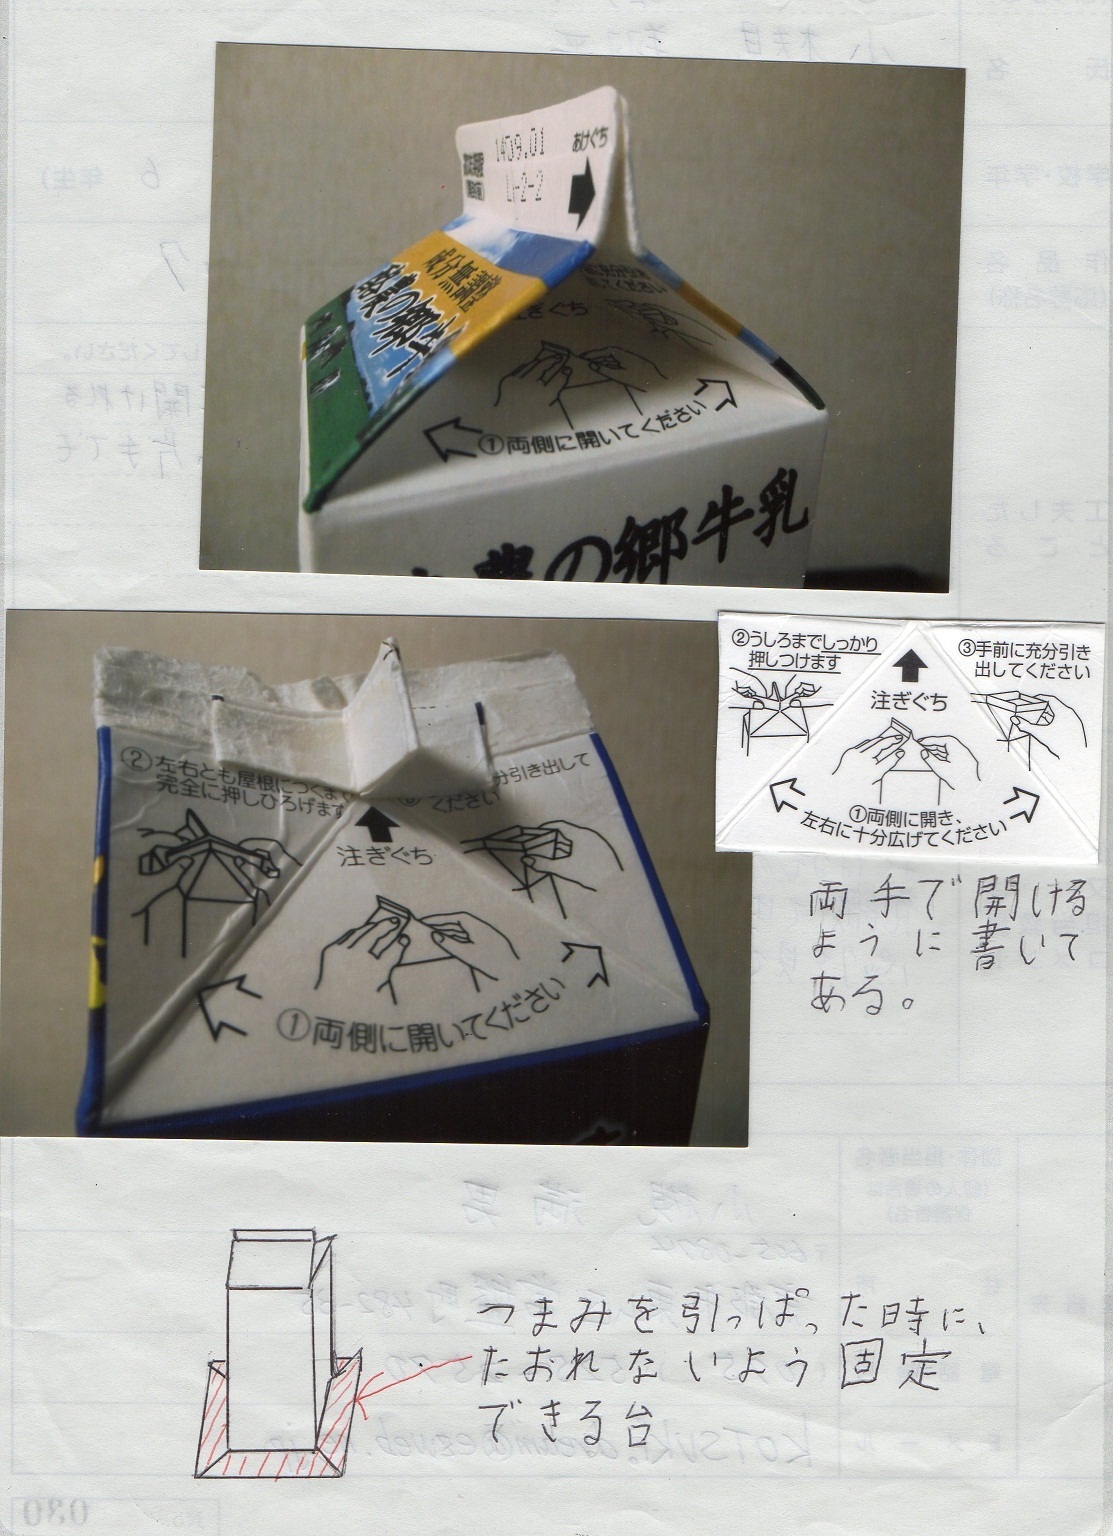 1459.01
あけぐち
成分無調整
注ぎぐち
①両側に開いてください
の郷牛乳
②左右とも屋根につくま
完全に押しひろげます
分引き出して
ください
注ぎぐち
①両側に開いてください
②うしろまでしっかり
押しつけます
注ぎぐち
③手前に充分引き
出してください
①両側に開き、
左右に十分広げてください
両手で開ける
ように書いて
ある。
つまみを引っぱった時に、
たおれないよう固定
できる台